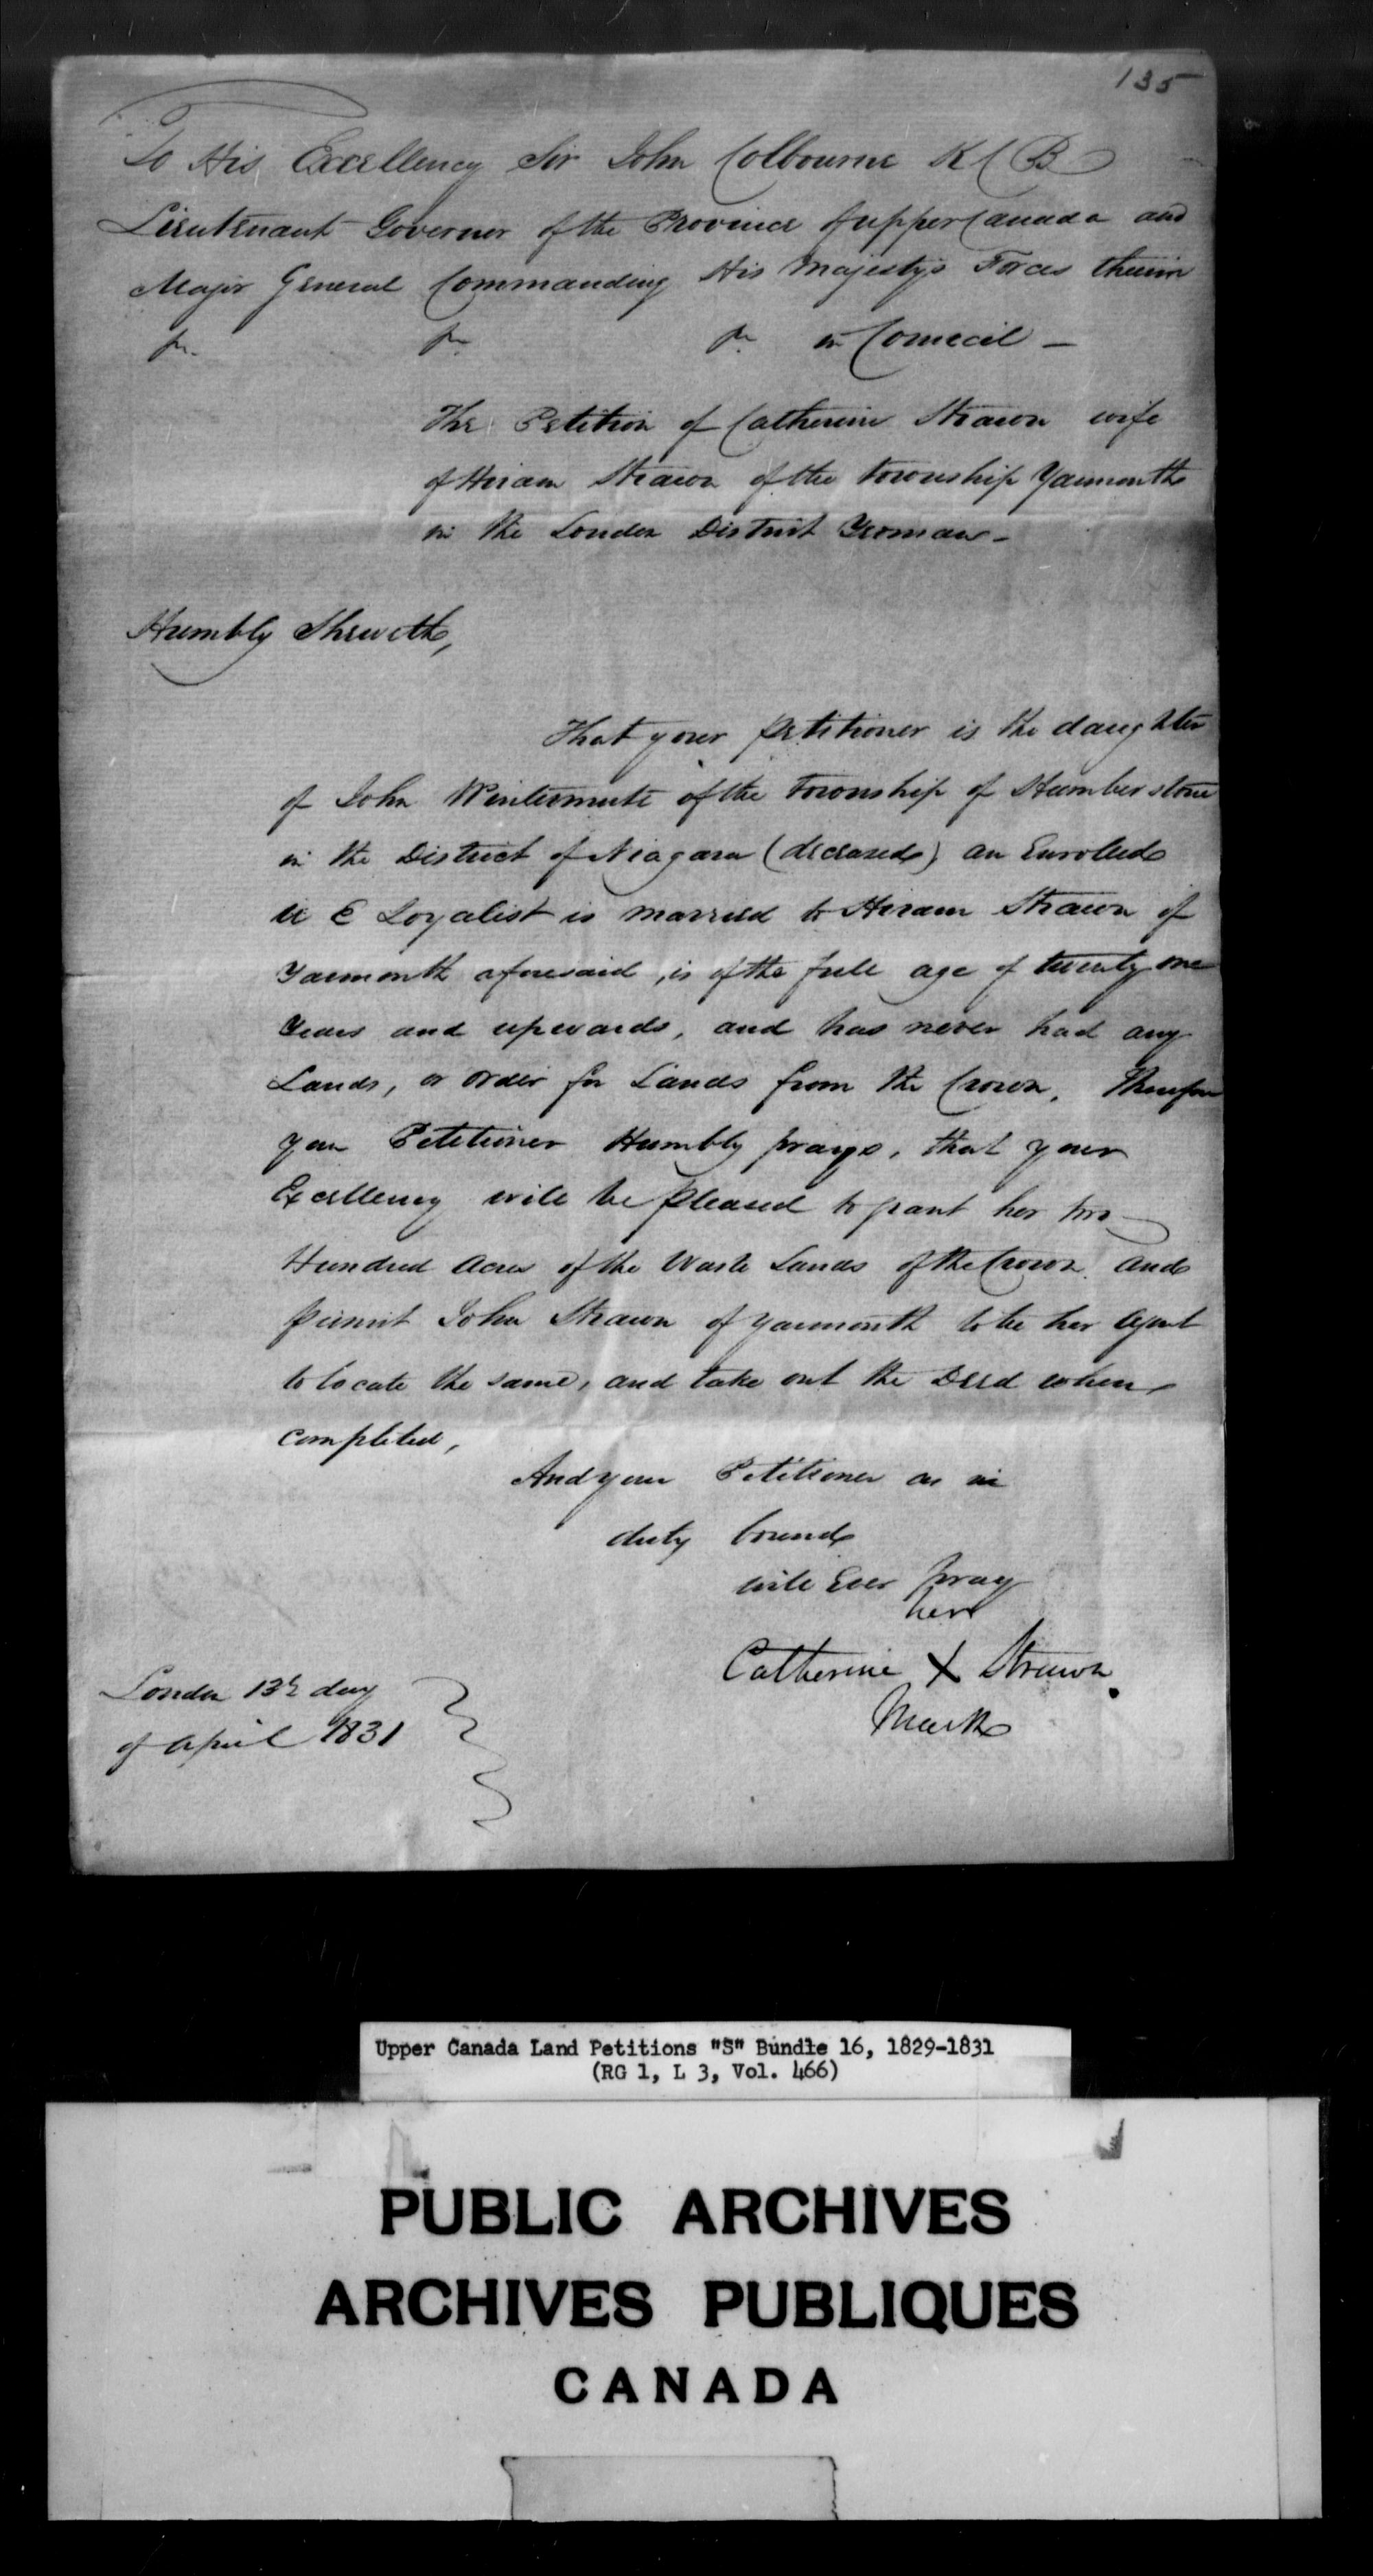 135
To His Excellency Sir John Colbourne K C B
Lieutenant Governor of the Province of upper Canada and
Major General Commanding His Majestys Forces therein
&c. &c. &c. in Council —
The Petition of Catherine Strawn wife
of Hiram Strawn of the township Yarmouth
in the London District Yeoman -
Humbly Sheweth,
That your petitioner is the daughter
of John Wintermute of the township of Humberstone
in the District of Niagara (deceased) an Enrolled
U E Loyalist is married to Hiram Strawn of
Yarmouth aforesaid, is of the full age of twenty one
Years and upwards, and has never had any
Lands, or order for Lands from the Crown. Therefore
your Petitioner Humbly prays, that your
Excellency will be pleased to grant her two
Hundred Acres of the Waste Lands of the Crown and
permit John Strawn of Yarmouth to be her Agent
to locate the same, and take out the Deed when
completed,
And your Petitioner as in
duty bound
will Ever pray
her
Catherine X Strawn
Mark
London 13th day
of April 1831
Upper Canada Land Petitions "S" Bundle 16, 1829-1831
(RG 1, L 3, Vol. 466)
PUBLIC ARCHIVES
ARCHIVES PUBLIQUES
CANADA